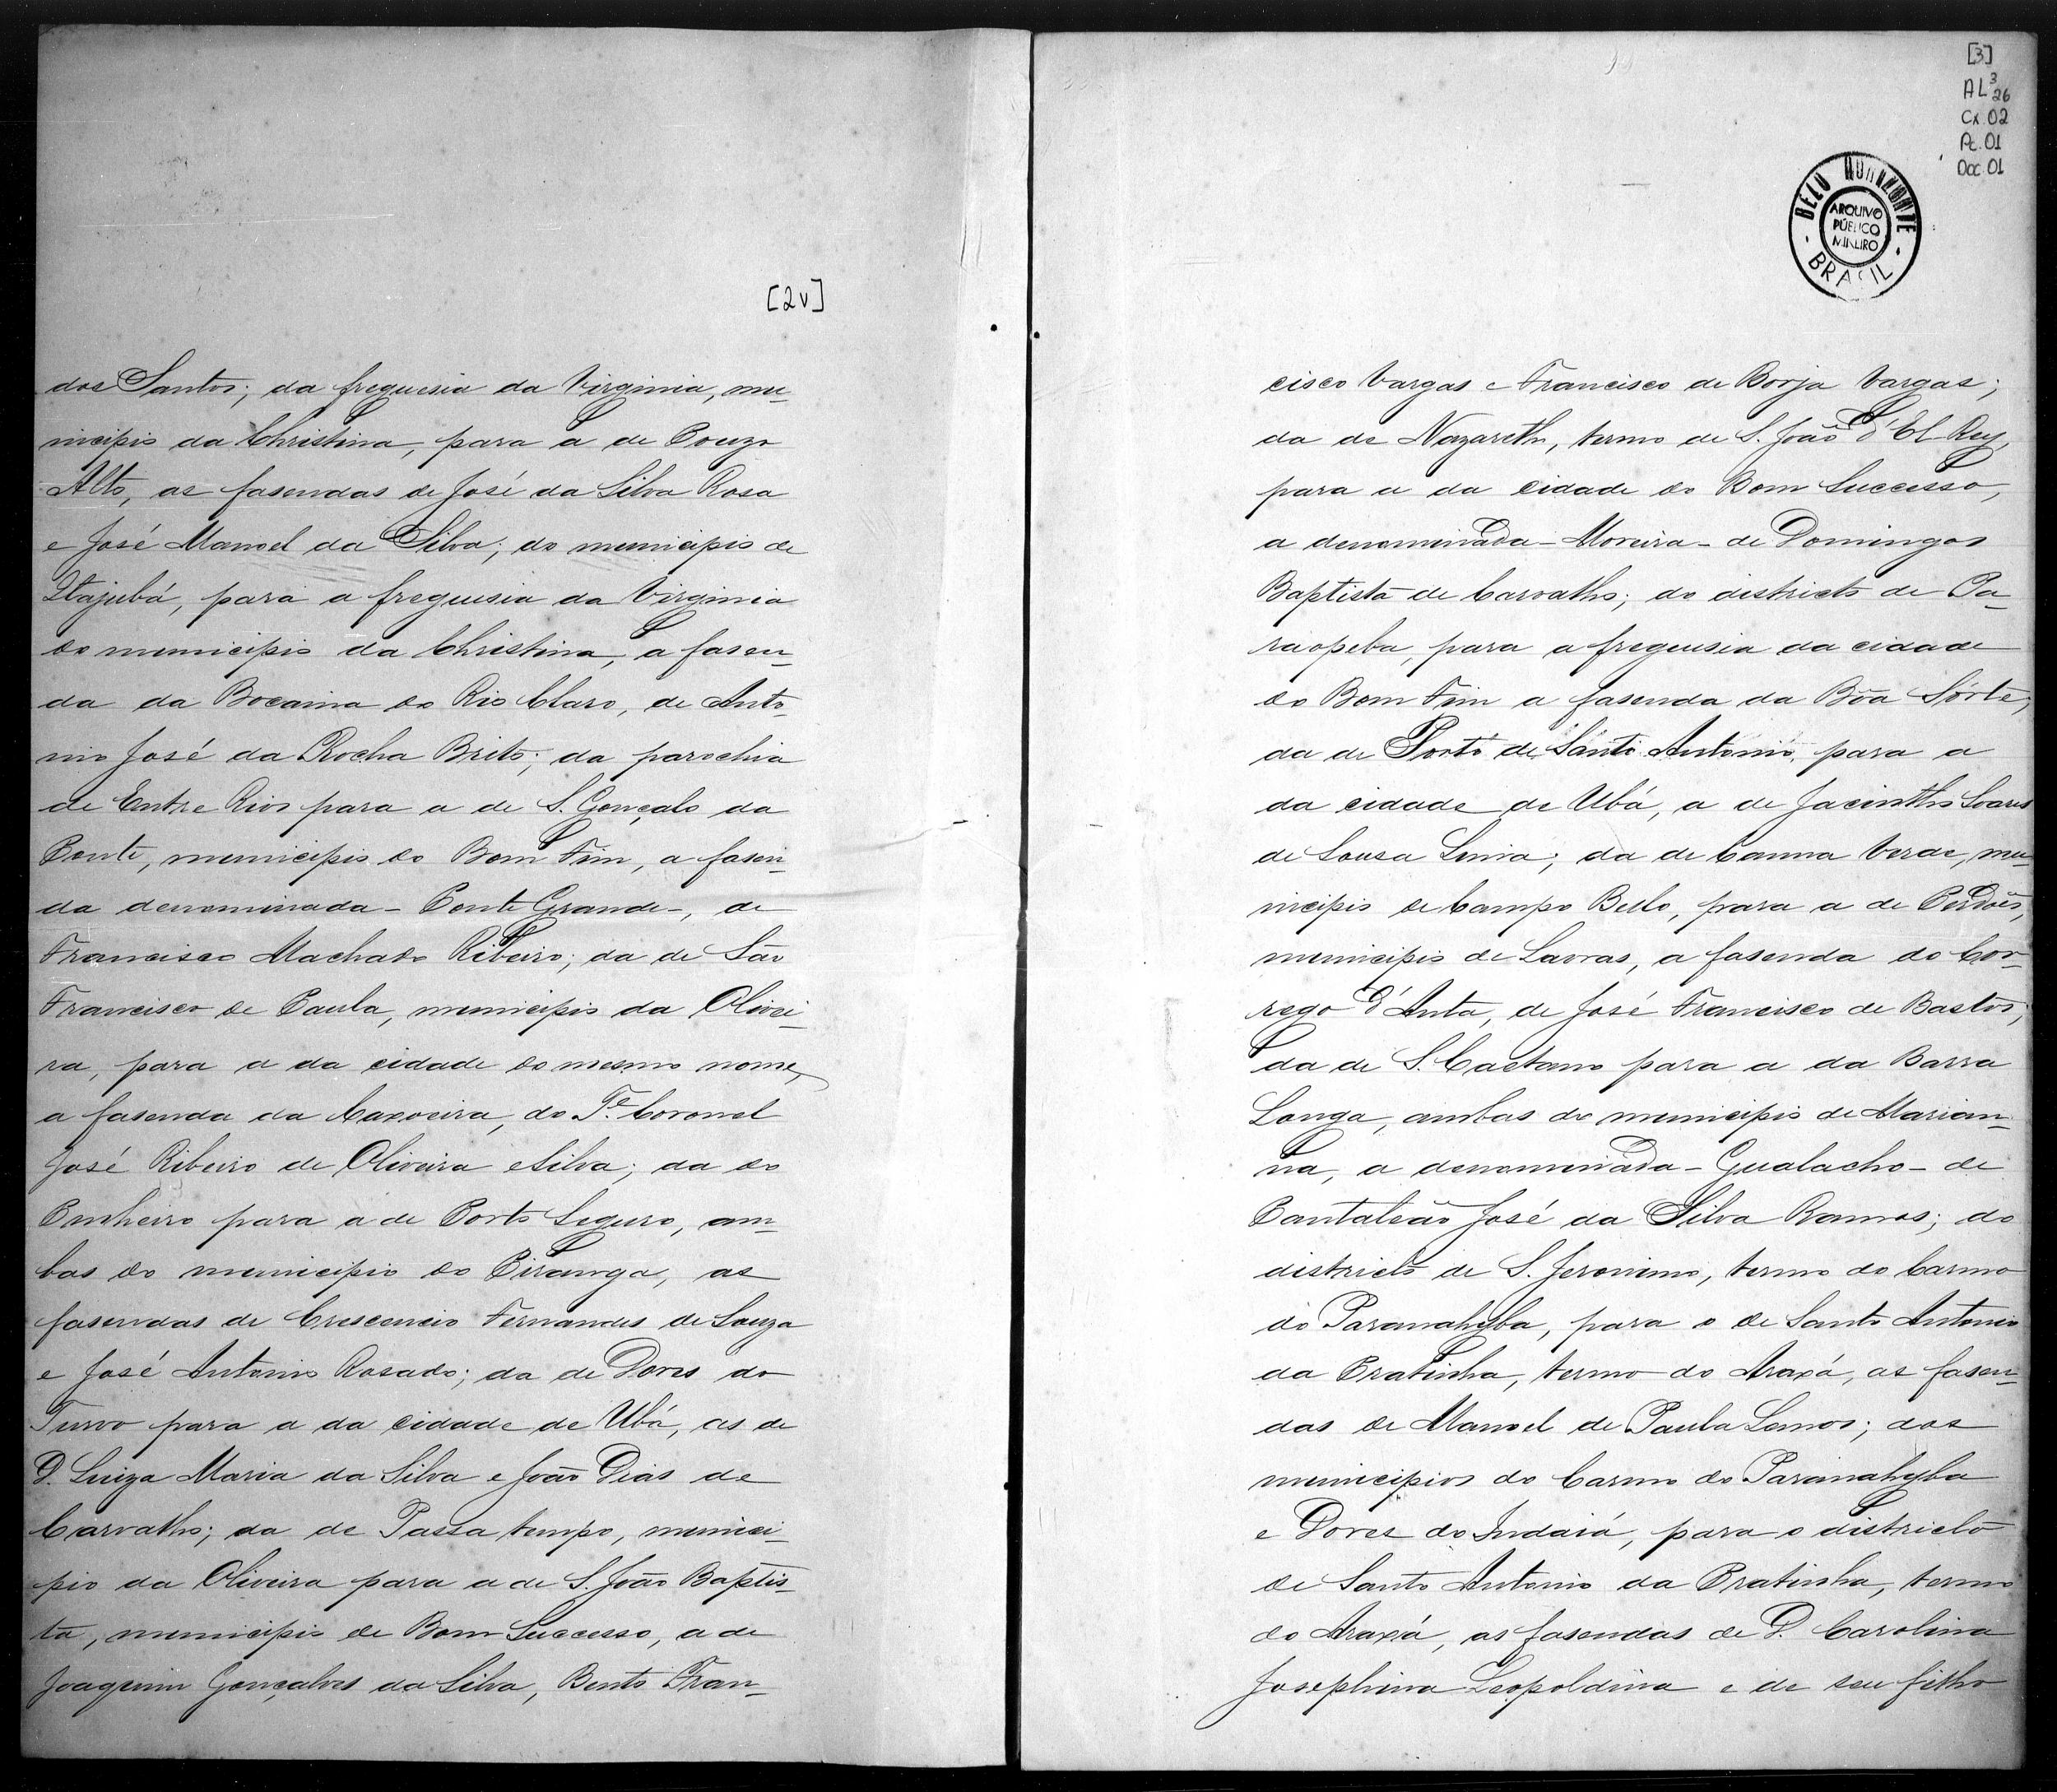 [2v]
dos Santos; da freguesia da Virginia, mu-
nicipio da Christina, para a de Pouzo
Alto, as fasendas de José da Silva Rosa
e José Manoel da Silva; do municipio de
Itajubá, para a freguesia da Virginia
do municipio da Christina, a fasen-
da da Bocaina do Rio Claro, de Anto-
nio José da Rocha Brito; da parochia
de Entre Rios para a de S. Gonçalo da
Ponte, municipio do Bom Fim, a fasen-
da denominada - Ponte Grande -, de
Francisco Machado Ribeiro; da de São
Francisco de Paula, municipio da Olivei-
ra, para a da cidade do mesmo nome,
a fasenda da Caxoeira, do Te. Coronel
José Ribeiro de Oliveira e Silva; da do
Pinheiro para a de Porto Seguro, am-
bas do municipio do Piranga, as
fasendas de Crescencio Fernandes de Souza
e José Antonio Rosado; da de Dores do
Turvo para a da cidade de Ubá, as de
D. Luiza Maria da Silva e João Dias de
Carvalho; da de Passa tempo, munici-
pio da Oliveira para a de S. João Baptis-
ta, municipio de Bom Successo, a de
Joaquim Gonçalves da Silva, Bento Fran-
[3]
AL3 26
Cx. 02
Pc. 01
Doc. 01
BELO HORIZONTE
ARQUIVO
PÚBLICO
MINEIRO
BRASIL
cisco Vargas e Francisco de Borja Vargas;
da de Nazareth, termo de S. João d'El-Rey,
para a da cidade do Bom Successo,
a denominada - Moreira - de Domingos
Baptista de Carvalho; do districto de Pa-
raopeba, para a freguesia da cidade
do Bom Fim a fasenda da Bôa Sorte;
da de Porto de Santo Antonio, para a
da cidade de Ubá, a de Jacintho Soares
de Sousa Lima; da de Canna Verde, mu-
nicipio de Campo Bello, para a de Perdões,
municipio de Lavras, a fasenda do Cor-
rego d'Anta, de José Francisco de Bastos;
da de S. Caetano para a da Barra
Longa, ambas do municipio de Marian-
na, a denominada - Gualacho - de
Pantaleão José da Silva Ramos; do
districto de S. Jeronimo, termo do Carmo
do Paranahyba, para o de Santo Antonio
da Pratinha, termo do Araxá, as fasen-
das de Manoel de Paula Lemos; dos
municipios do Carmo do Paranahyba
e Dores do Indaiá, para o districto
de Santo Antonio da Pratinha, termo
do Araxá, as fasendas de D. Carolina
Josephina Leopoldina e de seu filho